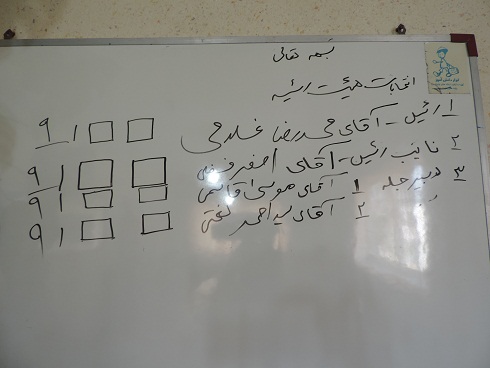 بسمه تعالی
انتخابات هیئت رئیسه
۱ رئیس - آقای محمدرضا غلامی ۹۱
۲ نایب رئیس - آقای اصغر ۹۱
۳ دبیر جلسه ۱ آقای موسی ۹۱
۲ آقای سید احمد ۹۱